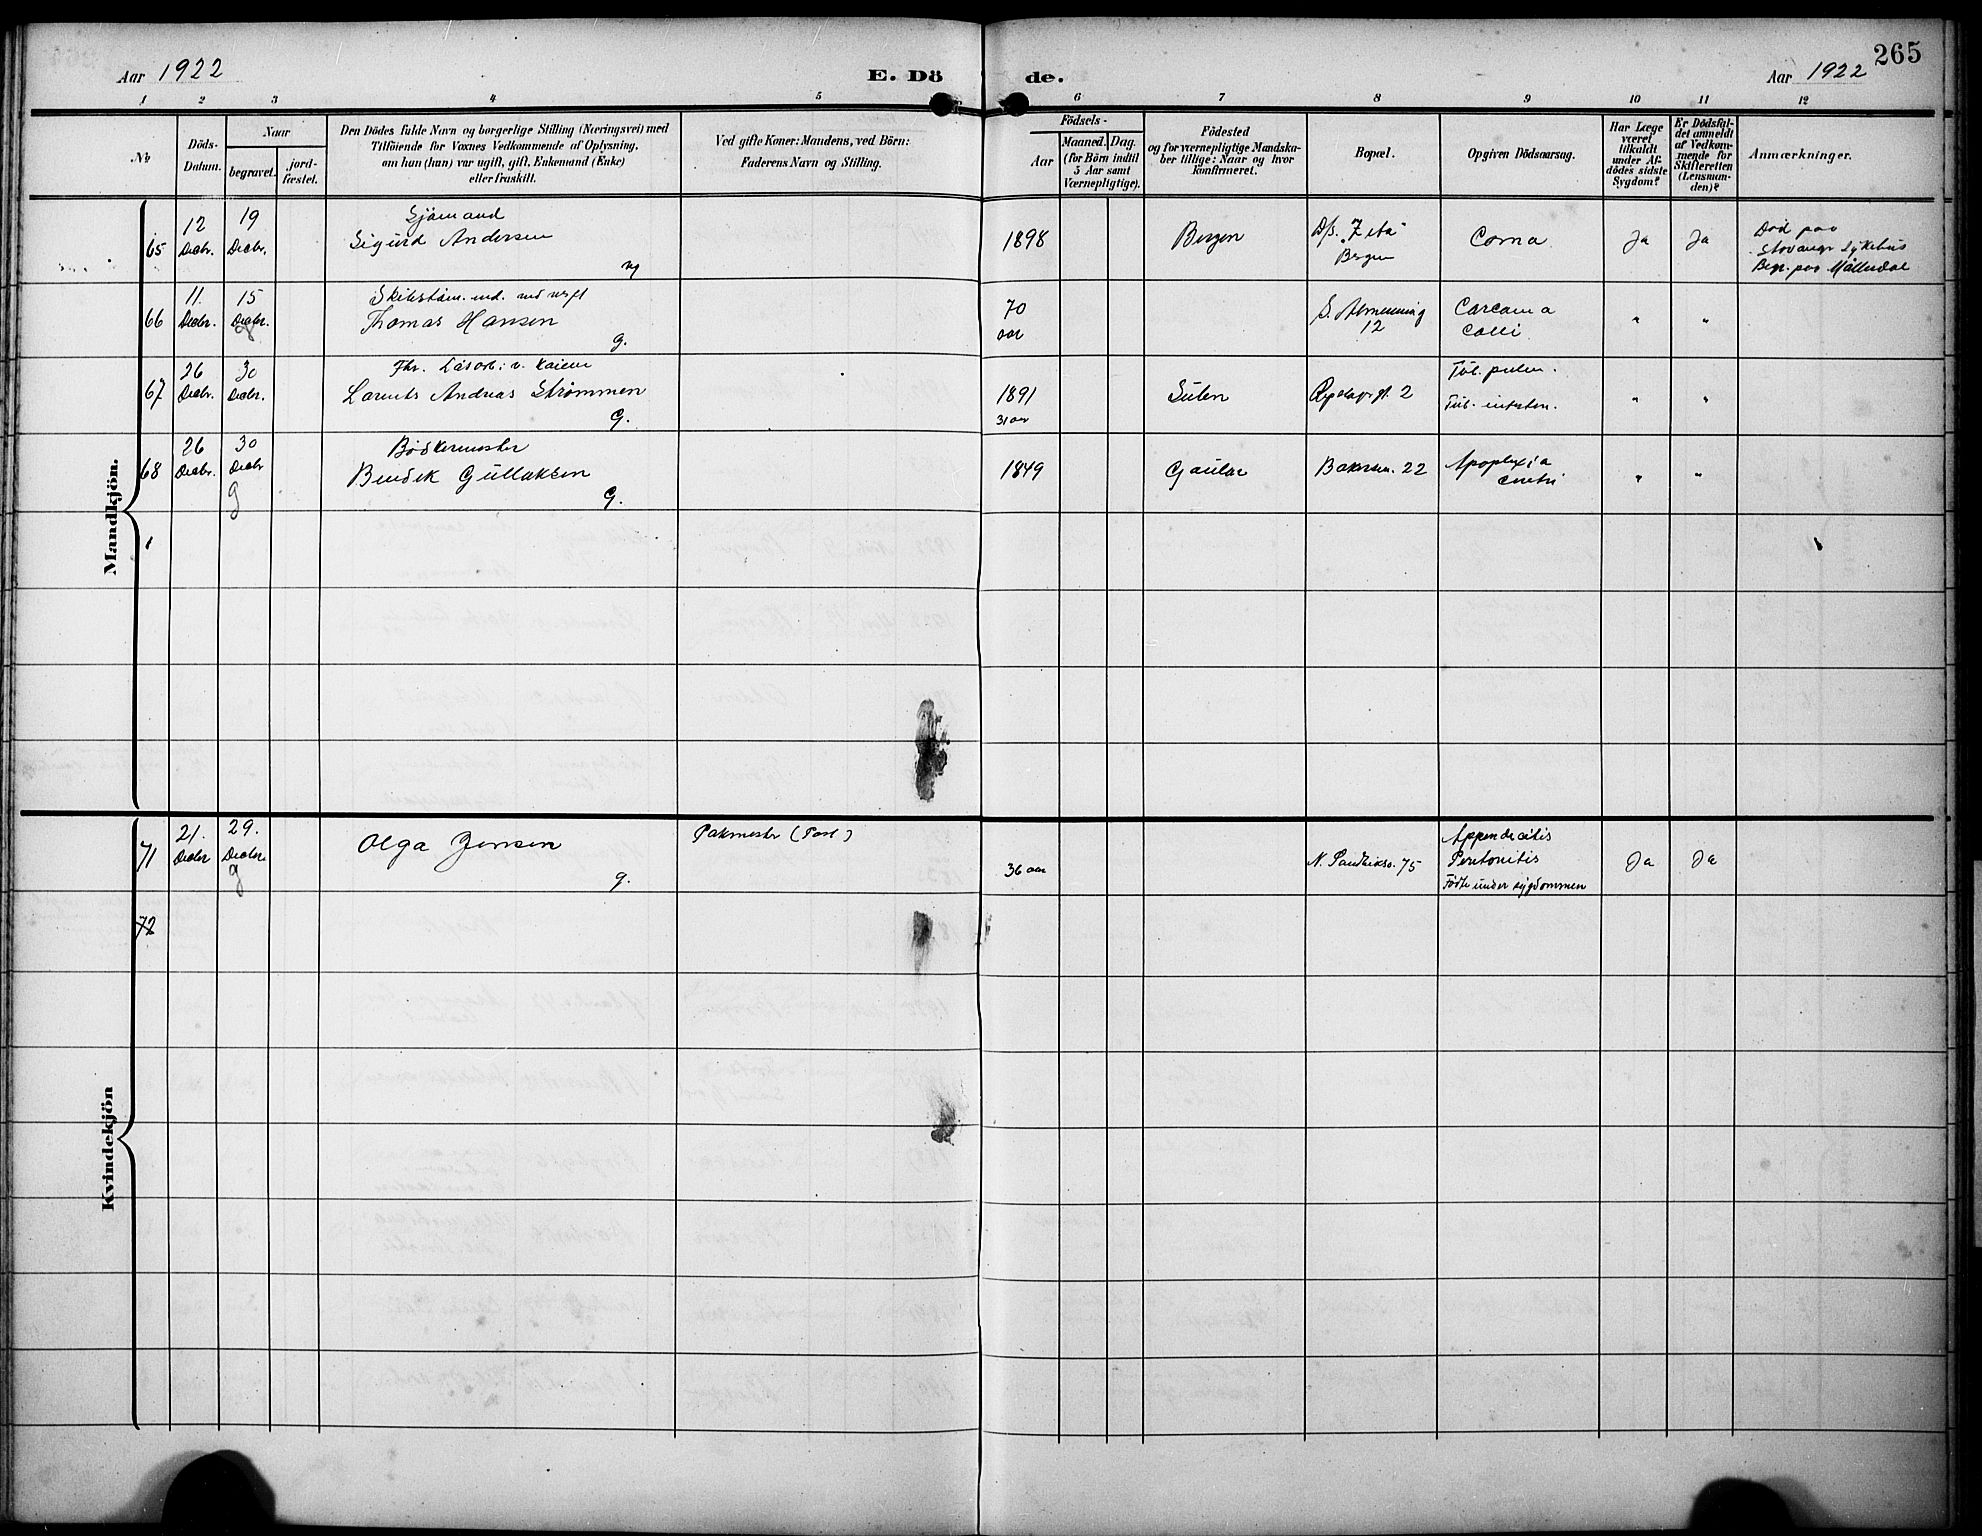 265
Aar 1922
E. Dö de.
Aar 1922
1 2 3 4 5 6 7 8 9 10 11 12
Nr.
Döds-
Datum.
Naar
begravet.
jord-
fæstet.
Den Dödes fulde Navn og borgerlige Stilling (Næringsvei) med
Tilföiende for Voxnes Vedkommende af Oplysning,
om han (hun) var ugift, gift, Enkemand (Enke)
eller fraskilt.
Ved gifte Koner: Mandens, ved Börn:
Faderens Navn og Stilling.
Födsels-
Aar
Maaned.
Dag.
(for Börn indtil
5 Aar samt
Værnepligtige).
Födested
og for værnepligtige Mandska-
ber tillige: Naar og hvor
konfirmeret.
Bopæl.
Opgiven Dödsaarsag.
Har Læge
været
tilkaldt
under Af-
dödes sidste
Sygdom?
Er Dödsfal-
det anmeldt
af Vedkom-
mende for
Skifteretten
(Lensman-
den)?
Anmærkninger.
Mandkjön.
65
12
Decbr.
19
Decbr.
Sjömand
Sigurd Andersen
ug
1898
Bergen
D/s. "Zeta"
Bergen
Coma
Ja
Ja
Död paa
Stavanger Sykehus
Begr. paa Møllendal
66
11.
Decbr.
15
Decbr.
g
Thomas Hansen
g.
70
aar
S. Almenning
12
Carcoma
Colli
"
"
67
26
Decbr.
30
Decbr.
Laurits Andreas Strømmen
G.
1891
31 aar
Sulen
2
Tub. pulm.
Tub. intestin.
"
"
68
26
Decbr.
30
Decbr
g
Bödkermester
Bendik Gullaksen
G.
1849
Gaular
22
Apoplexia
cerebri
"
"
Kvindekjön
71
21.
Decbr
29.
Decbr.
g
Olga Jensen
g.
Pakmester (Post)
36 aar
N. 75
Appendecitis
Peritonitis
Födte under sygdommen
Ja
Ja
72